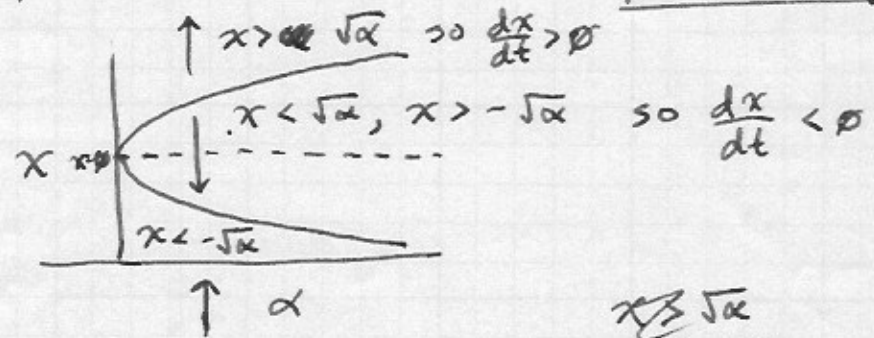 x > √α so dx/dt > ∅
x < √α, x > -√α so dx/dt < ∅
x x=∅
x < -√α
α
x ≥ √α